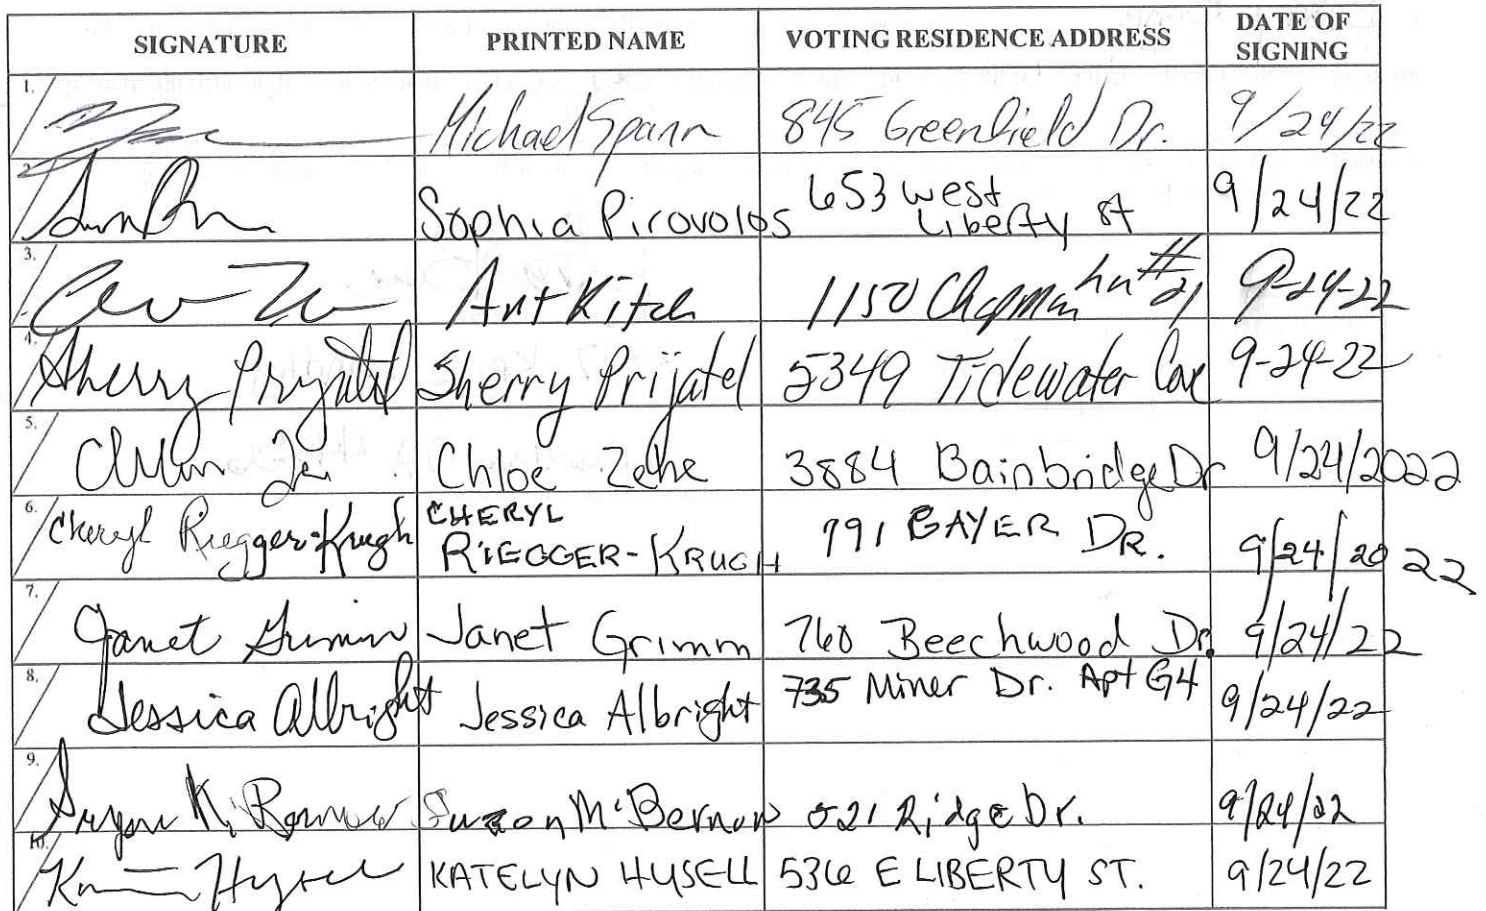 SIGNATURE PRINTED NAME VOTING RESIDENCE ADDRESS DATE OF SIGNING
1. Michael Spann 845 Greenfield Dr. 9/24/22
2. Sophia Pirovolos 653 west Liberty st 9/24/22
3. Art Kitch 1150 Chapman #21 9-24-22
4. Sherry Prijatel Sherry Prijatel 5349 Tidewater Cove 9-24-22
5. Chloe Zehe 3884 Bainbridge Dr 9/24/2022
6. Cheryl Riegger-Krugh CHERYL RIEGGER-KRUGH 791 BAYER DR. 9/24/2022
7. Janet Grimm Janet Grimm 760 Beechwood Dr. 9/24/22
8. Jessica Albright Jessica Albright 735 Miner Dr. Apt G4 9/24/22
9. 521 Ridge Dr. 9/24/22
10. KATELYN HYSELL 536 E LIBERTY ST. 9/24/22